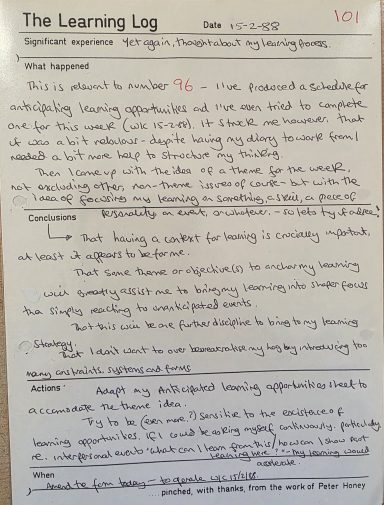 The Learning Log Date 15-2-88 101
Significant experience Yet again, thought about my learning process.
What happened
This is relevant to number 96 – I've produced a schedule for
anticipating learning opportunities and I've even tried to complete
one for this week (w/c 15-2-88). It struck me however, that
it was a bit nebulous - despite having my diary to work from I
needed a bit more help to structure my thinking.
Then I came up with the idea of a theme for the week,
not excluding other, non-theme issues of course - but with the
idea of focusing my learning on something, a skill, a piece of
personality, an event, or whatever, - so lets try it after!
Conclusions
That having a context for learning is crucially important,
at least it appears to be for me.
That some theme or objective(s) to anchor my learning
will greatly assist me to bring my learning into sharper focus
than simply reacting to unanticipated events.
That this will be one further discipline to bring to my learning
strategy.
That I don't want to over bureaucratise my log by introducing too
many constraints, systems and forms
Actions: Adapt my Anticipated learning opportunities sheet to
accomodate the theme idea.
Try to be (even more?) sensitive to the existence of
learning opportunities. If I could be asking myself continuously, particularly
re. interpersonal events "what can I learn from this/how can I show most
learning here?" - my learning would
accelerate.
When
Amend the form today - to operate w/c 15/2/88.
....pinched, with thanks, from the work of Peter Honey